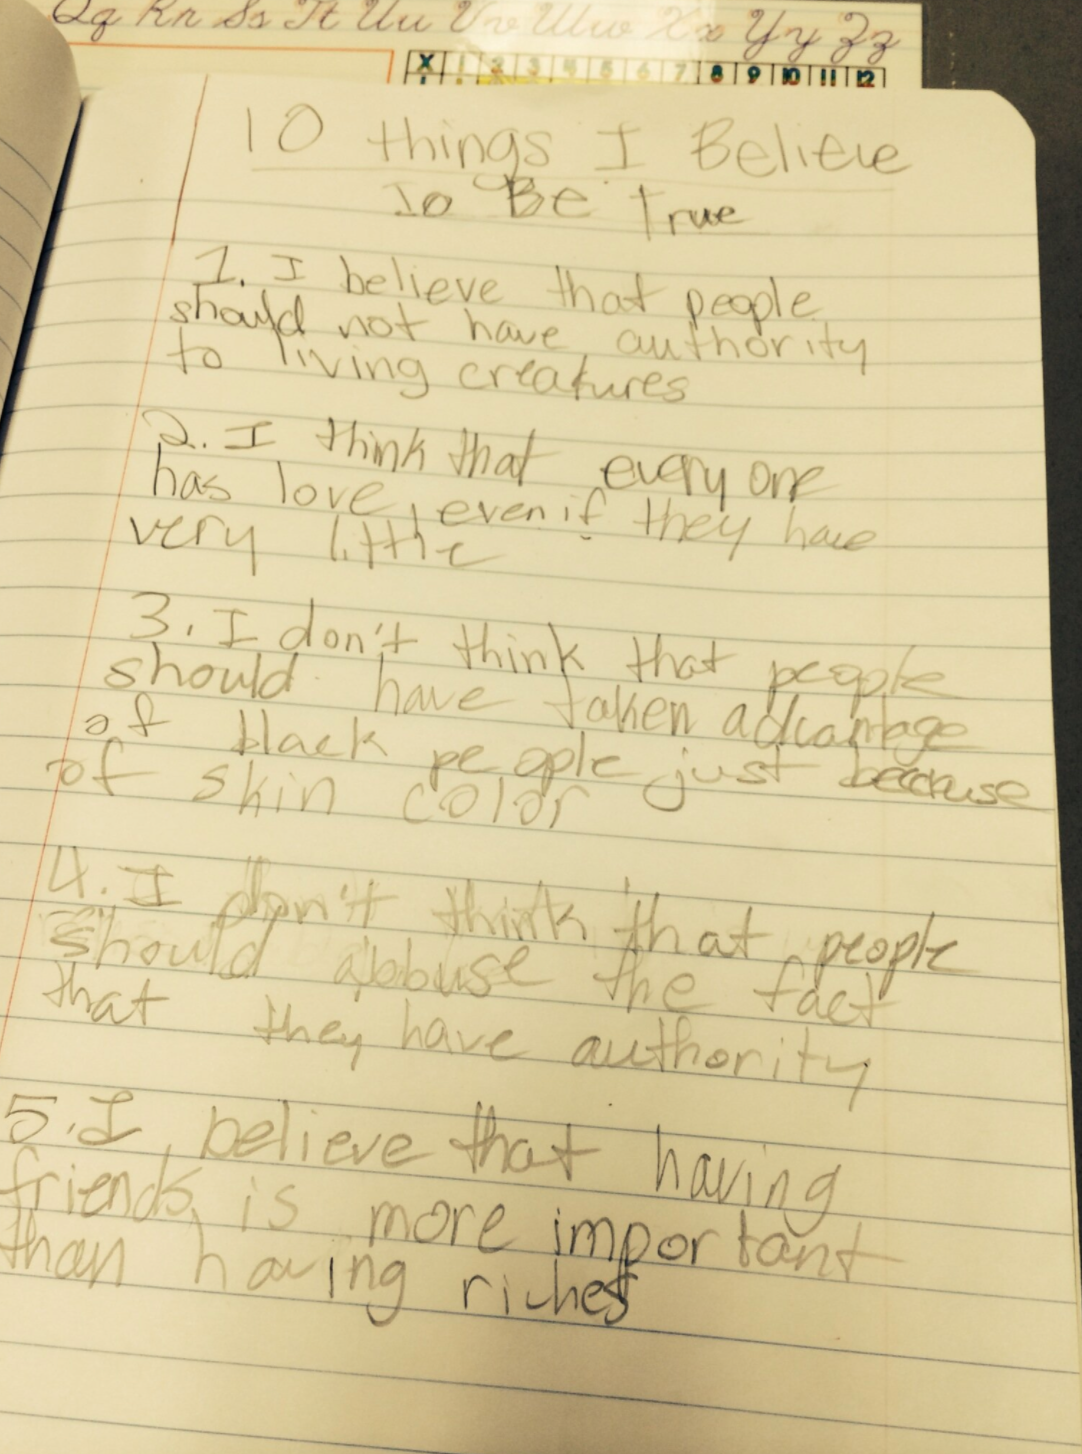 Qq Rr Ss Tt Uu Vv Ww Xx Yy Zz
X 1 2 3 4 5 6 7 8 9 10 11 12
10 things I Believe
To Be True
1. I believe that people
should not have authority
to living creatures
2. I think that every one
has love, even if they have
very little
3. I don't think that people
should have taken advantage
of black people just because
of skin color
4. I don't think that people
should abbuse the fact
that they have authority
5. I believe that having
friends is more important
than having riches